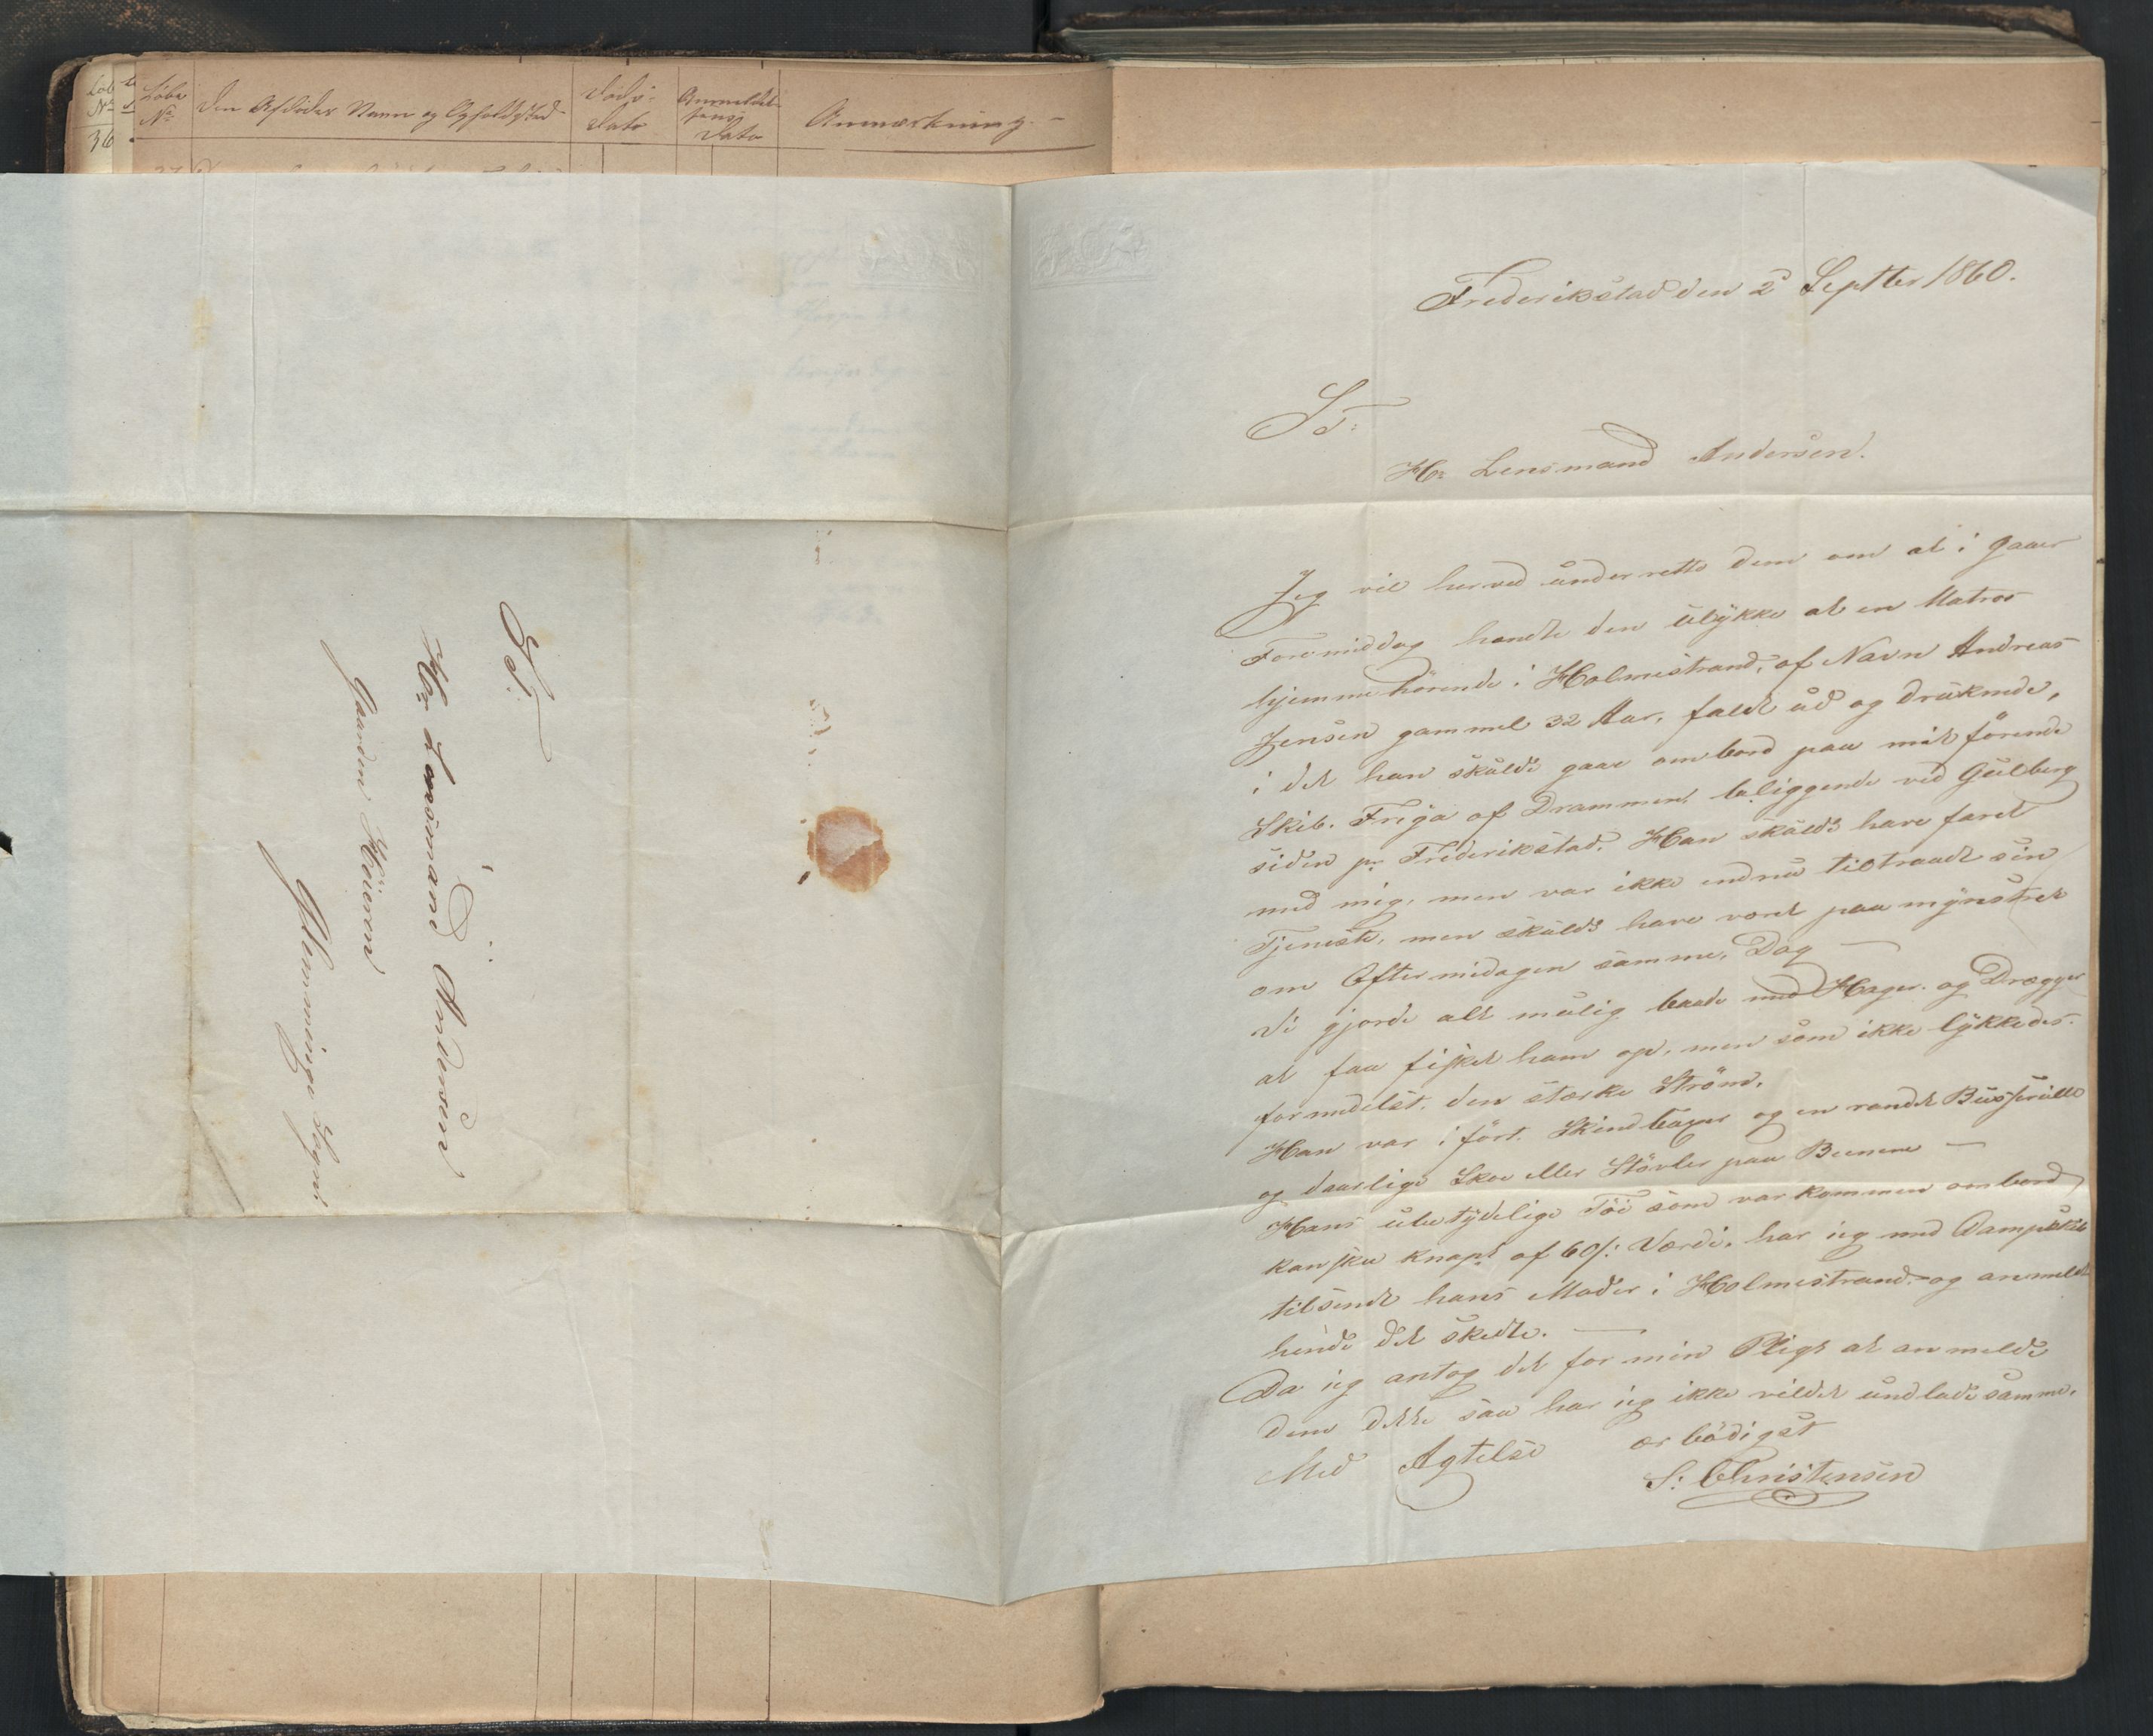 Løbe
No
Den Afdødes Navn og Opholdssted
Døds-
Dato
Anmeldel-
sens
Dato
Anmærkning.-
36
S T.
Hr. Lensmand Andersen
Gaarden Höieren
Glemminge Sogn
Frederikstad den 2d Septter 1860.
S T:
Hr. Lensmand Andersen.
Jeg vil herved underrette dem om at i gaar
Foremiddag hendte den ulykke at en Matros
hjemmehörende i Holmestrand, af Navn Andreas
Jensen gammel 32 Aar, faldt ud og druknede,
i det han skulde gaae ombord paa mit förende
Skib. Freja af Drammen, beliggende ved Gulberg
siden pr. Frederikstad. Han skulde have faret
med mig, men var ikke endnu tiltraadt sin
Tjeneste, men skulde have været paa mynstret
om Eftermidagen samme, Dag —
Vi gjorde alt mulig baade med Hager. og Drægger
at faa fisket ham op, men som ikke lykkedes.
formedelst. den stærke Ström.
Han var i fört. Skindbuxer og en randet Busserulle
og daarlige Skoe eller Stövler paa Benene —
Hans ubetydelige Töi som var kommen ombord,
kanskee knapt af 60 s: Værdi. har jeg med Dampskib
tilsendt hans Moder i Holmestrand. og anmeldt
hende det skedte. —
Da jeg antog det for min Pligt at anmelde
dem dette saa har jeg ikke vildet undlade samme.
Med Agtelse ærbödigst
S: Christensen